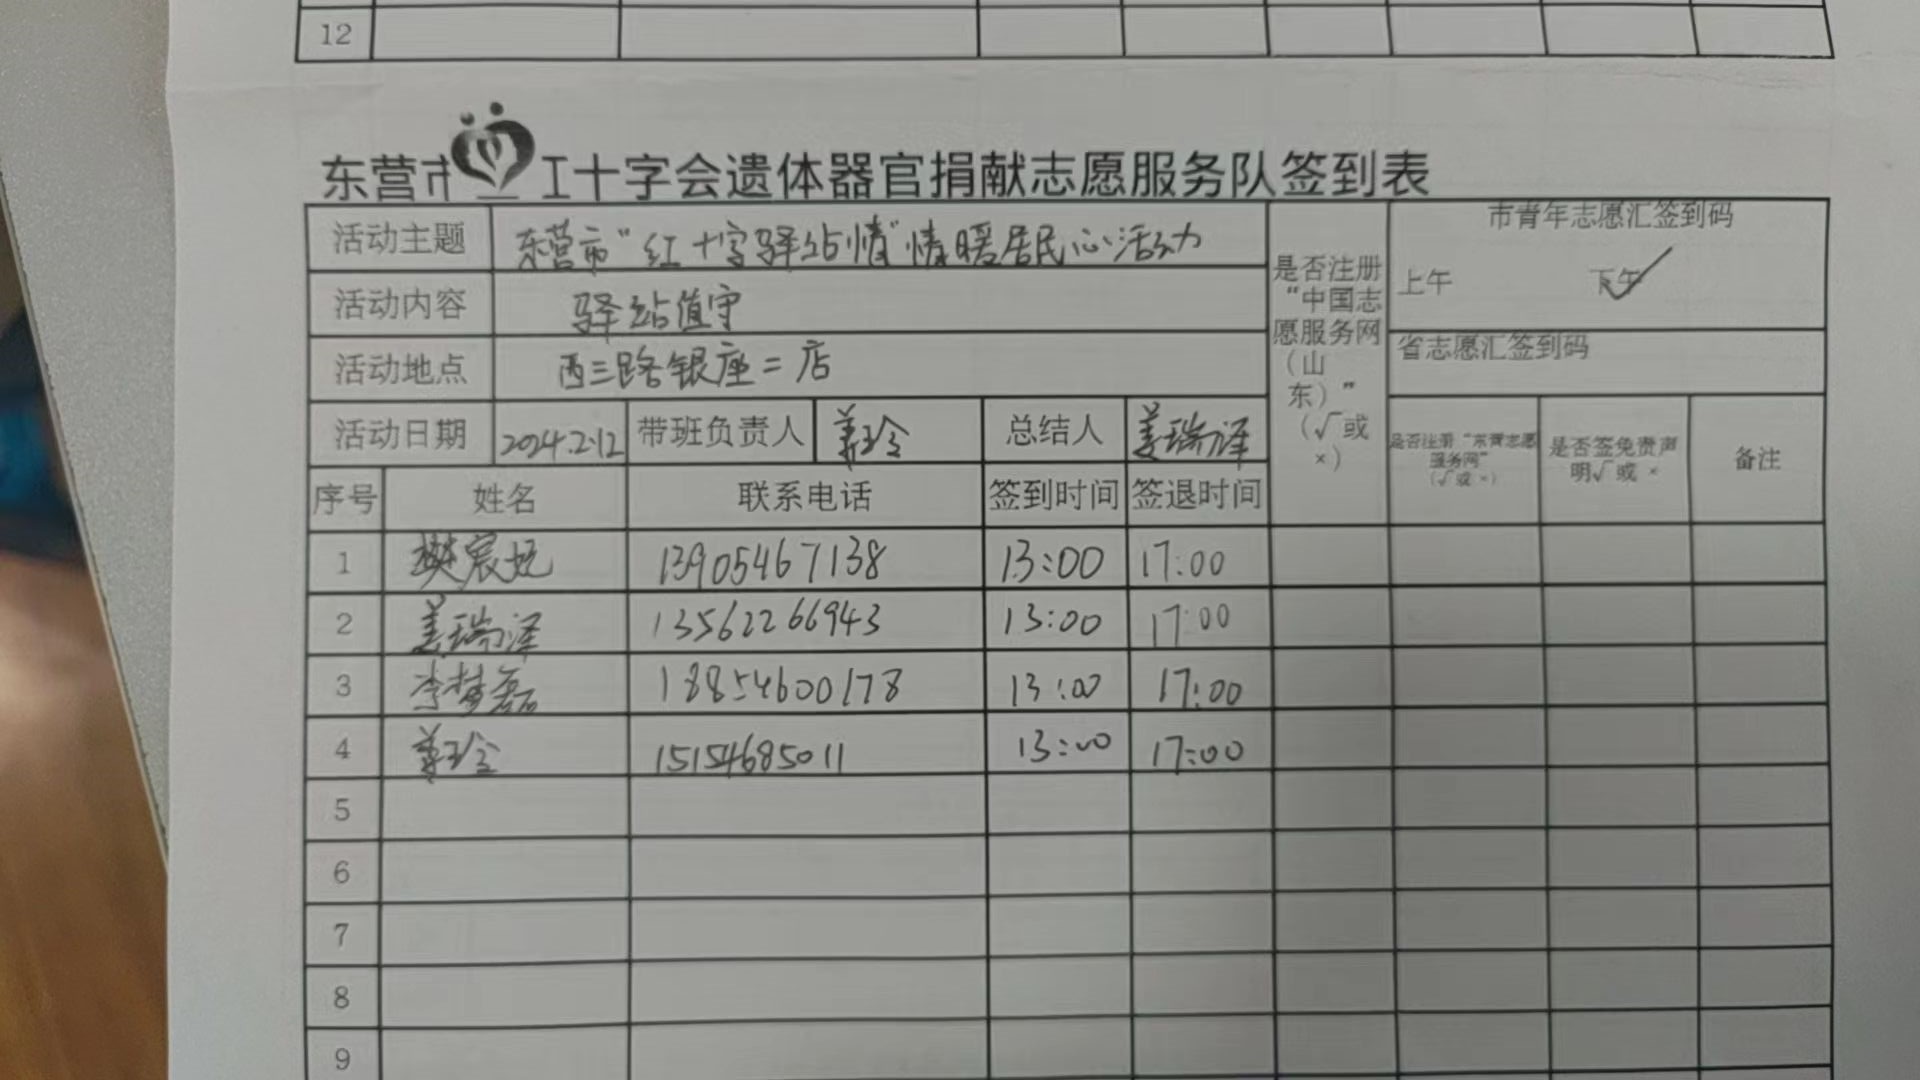 12
东营市红十字会遗体器官捐献志愿服务队签到表
活动主题 东营市“红十字驿站情”情暖居民心活动
活动内容 驿站值守
活动地点 西三路银座二店
活动日期 2024.2.12 带班负责人 姜玲 总结人 姜瑞泽
是否注册“中国志愿服务网（山东）”（√或×）
市青年志愿汇签到码
上午 下午 ✓
省志愿汇签到码
是否注册“东营志愿服务网”（√或×） 是否签免责声明√或× 备注
序号 姓名 联系电话 签到时间 签退时间
1 樊宸妃 13905467138 13:00 17:00
2 姜瑞泽 13562266943 13:00 17:00
3 李梦磊 18854600178 13:00 17:00
4 姜玲 15154685011 13:00 17:00
5
6
7
8
9